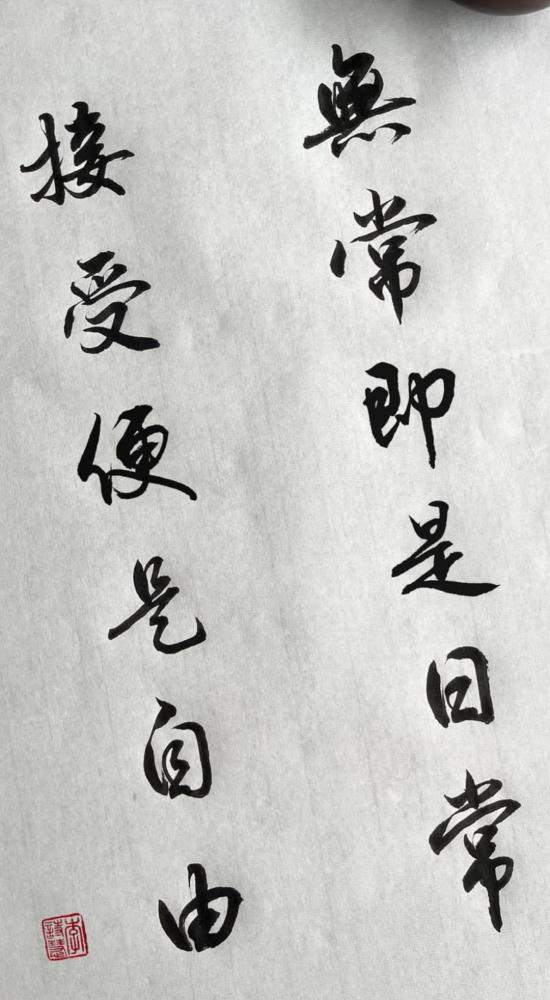 無常即是日常
接受便是自由